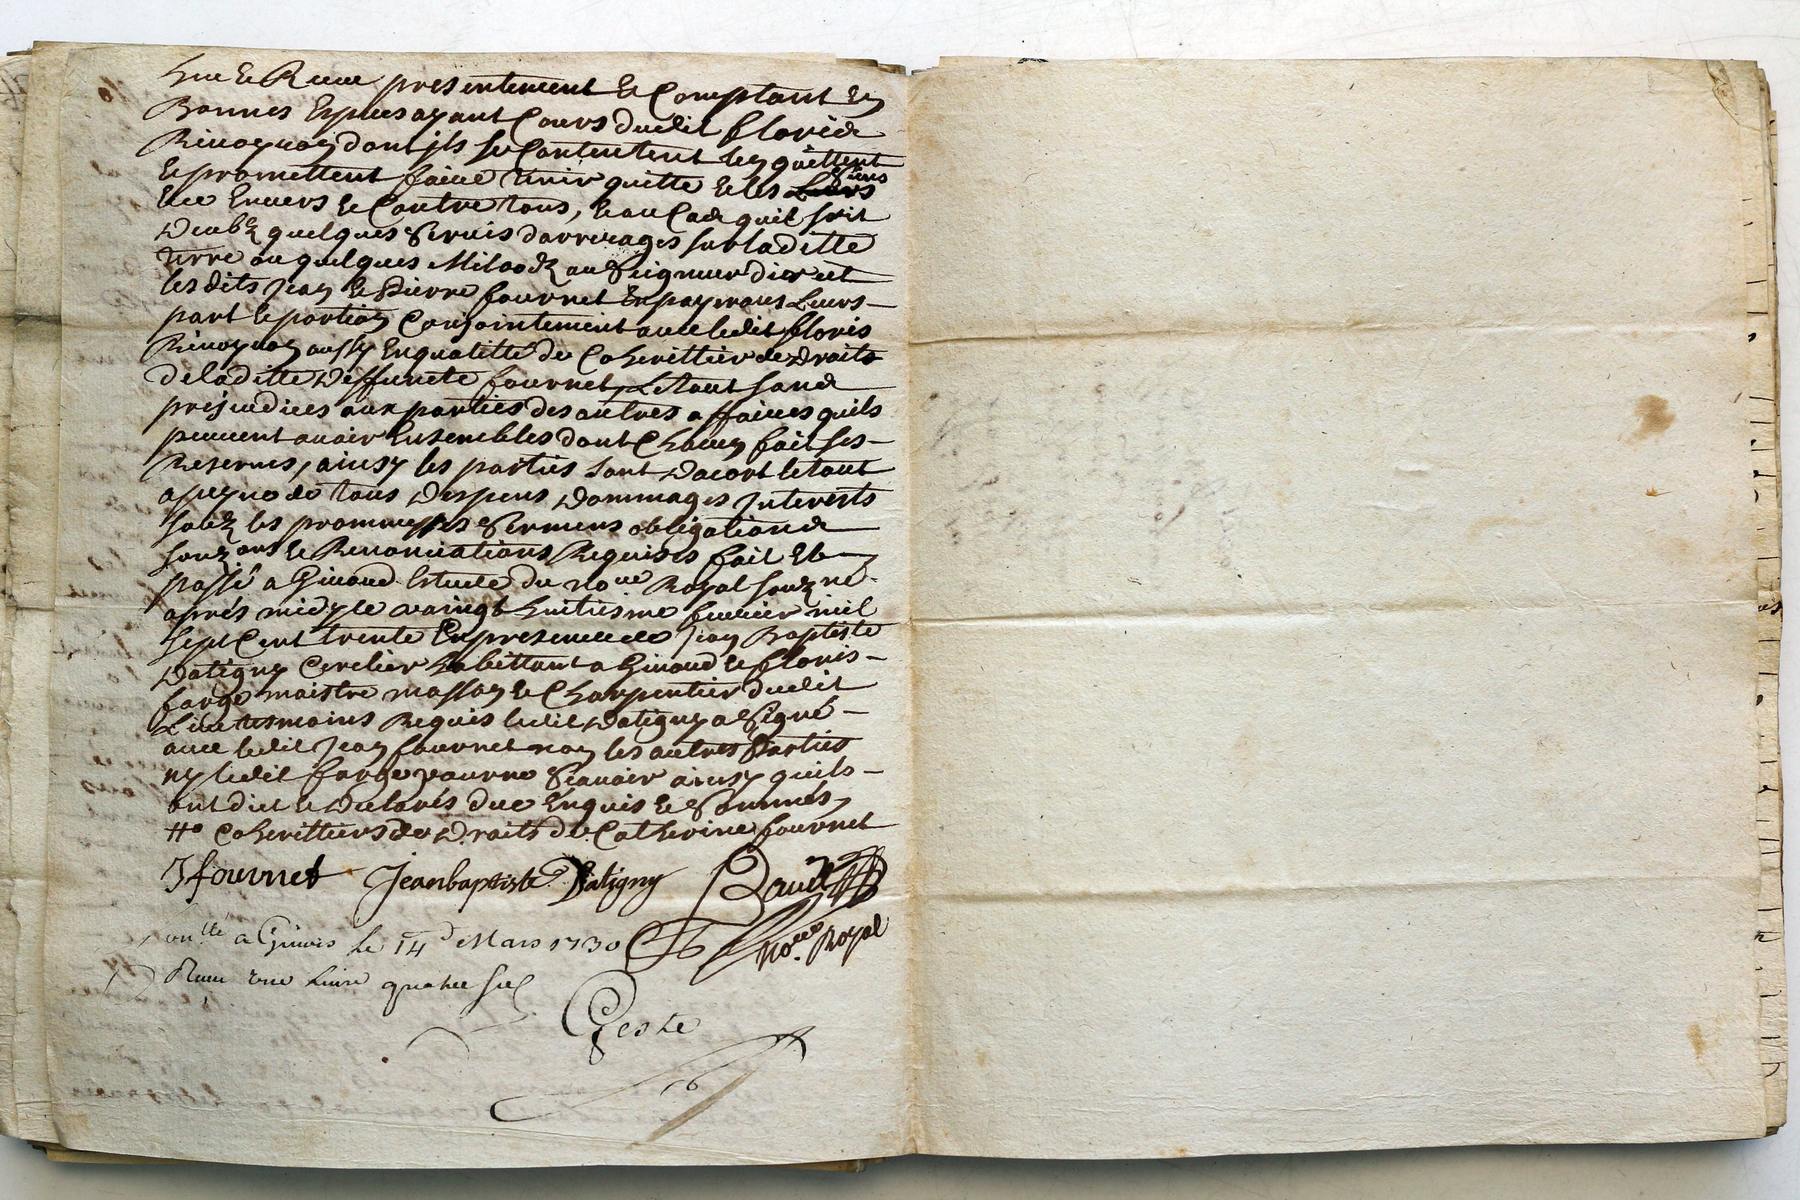 presentement & Comptant En
Bonnes Especes ayant Cours dudit floris
dont jls se Contentent Len quittent
& promettent faire tenir quitte & les Leurs siens
Envers & Contre tous, & au Cas quil soit
quelques servis darrerages sur laditte
terre ou quelques Milods au seigneur direct
les dits Jean & Pierre fournet En payerons Leurs
part & portion Conjointement avec ledit floris
aussy En qualitté de Coherittier de Droits
de laditte Deffuncte fournet, Le tout sans
prejudices aux parties des autres affaires quils
peuvent avoir Ensembles dont Chacun fait ses
Reserves, ainsy les parties sont Dacort le tout
a peyne de tous Despens Dommages Jnterests
soubz les prommesses sermens obligations
& Renonciations Requises fait &
passé a Estude du nore Royal soubzné
aprés midy le vaingt huitiesme fevrier mil
sept Cent trente En presence de Jean Baptiste
Datigny habittant a & floris
farge maistre masson & Charpentier dudit
Lieu tesmoins Requis ledit Datigny a signé
avec ledit Jean fournet non les autres parties
ny ledit farge pour ne sçavoir ainsy quils
ont dict & Declarés de ce Enquis & sommés
Coherittiers de Droits de Catherine fournet
J fournet Jeanbaptiste Datigny
nore Royal
Conllé a le 14e Mars 1730
Receu une Livre quatre sols
Geste